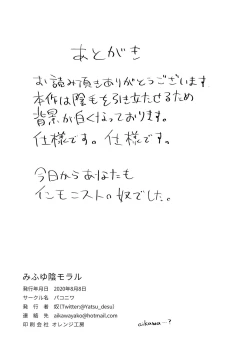 あとがき
お読み頂きありがとうございます
本作は陰毛を引き立たせるため
背景が白くなっております。
仕様です。仕様です。
今日からあなたも
インモニストの奴でした。
みふゆ陰モラル
発行年月日 2020年8月8日
サークル名 パコニワ
発行者 奴(Twitter:@Yatsu_desu)
連絡先 aikawayako@hotmail.com
印刷会社 オレンジ工房
aikawa-?